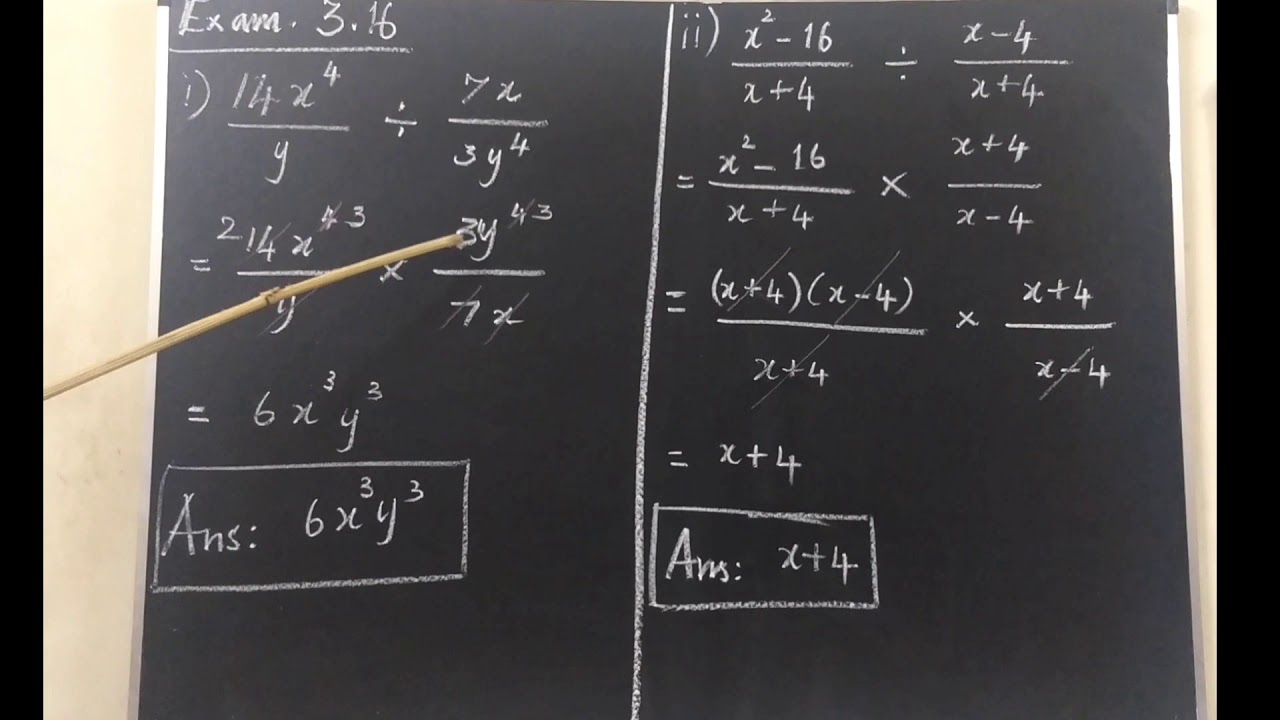 Exam. 3.16
i) 14x⁴/y ÷ 7x/3y⁴
= ²14x⁴³/y × 3y⁴³/7x
= 6x³y³
Ans: 6x³y³
ii) x²-16/x+4 ÷ x-4/x+4
= x²-16/x+4 × x+4/x-4
= (x+4)(x-4)/x+4 × x+4/x-4
= x+4
Ans: x+4